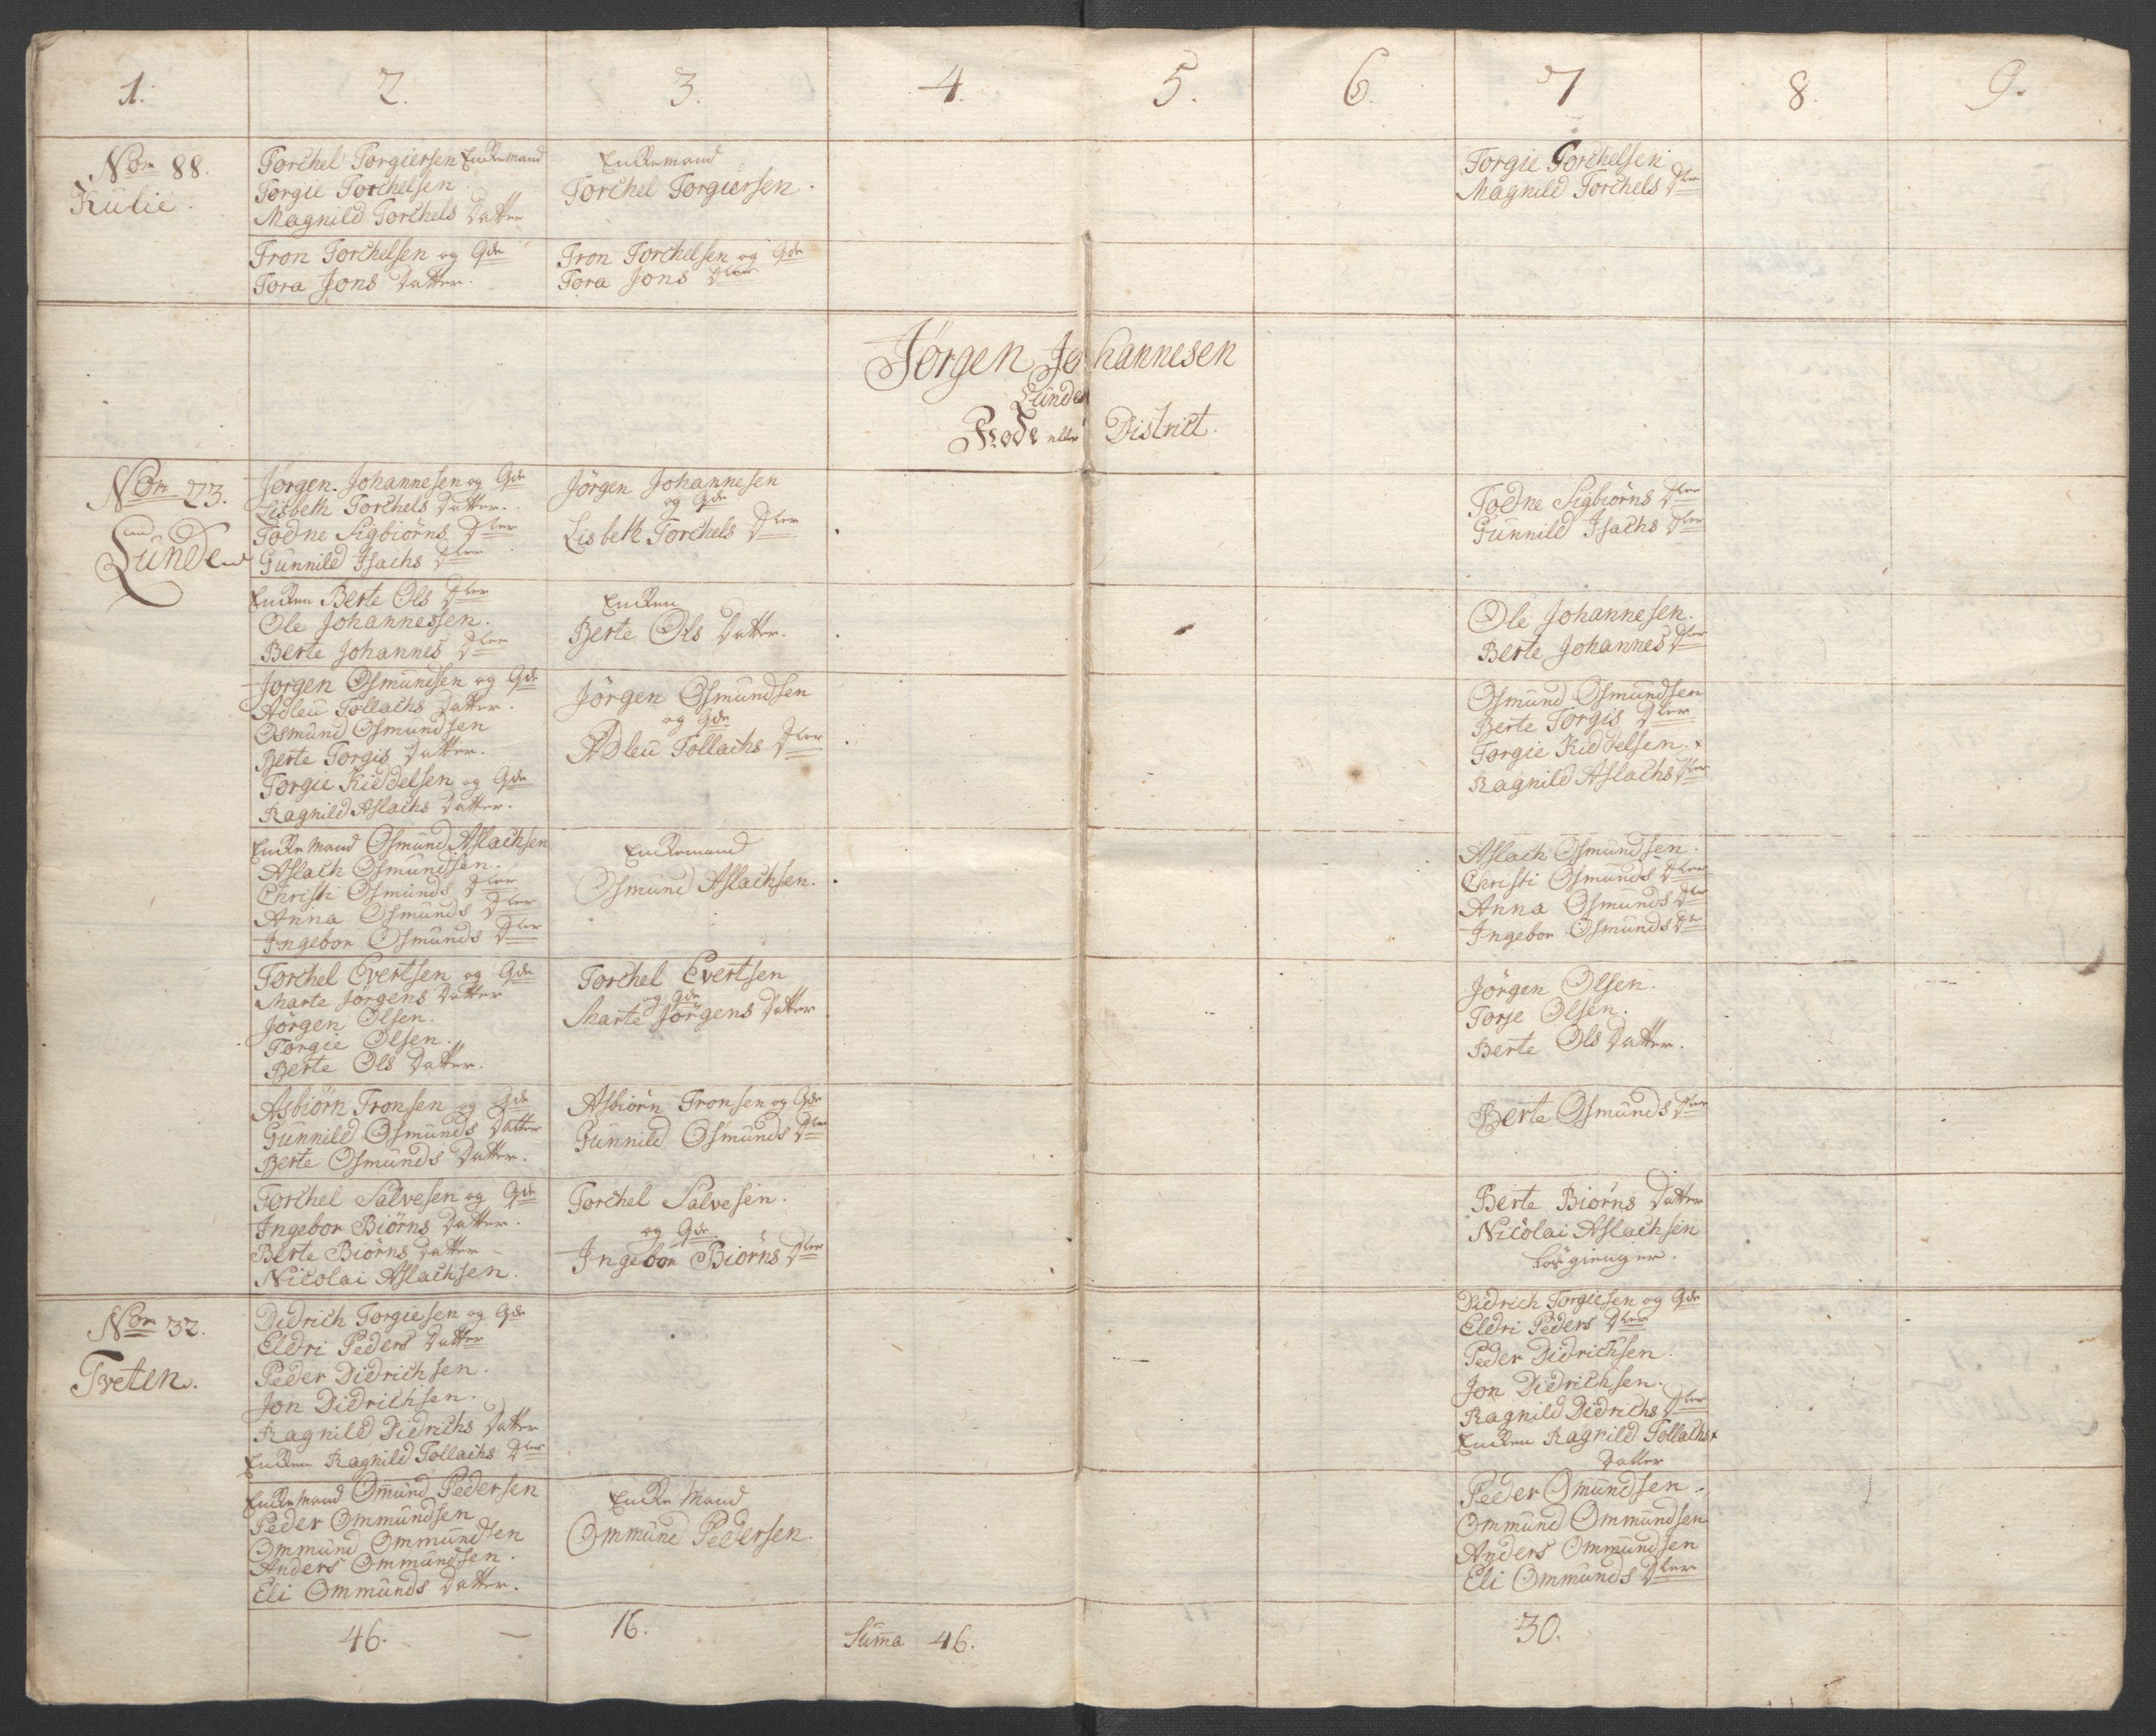 1. 2. 3. 4. 5. 6. 7 8. 9.
Nor 88.
Kulie.
Torchel Torgiersen Enkemand
Torgie Torchelsen
Magnild Torchels Datter
Enkemand
Torchel Torgiersen.
Torgie Torchelsen
Magnild Torchels Dter
Tron Torchelsen og Qde
Tora Jons Datter.
Tron Torchelsen og Qde
Tora Jons Dter
Jörgen Johannesen
Lunde
Rode eller District.
Nor 23.
Lunde
Jörgen Johannesen og Qde
Lisbeth Torchels Datter.
Todne Sigbiörns Dter
Gunnild Isachs Dter
Jörgen Johannesen
og Qde
Lisbeth Torchels Dter
Todne Sigbiörns Dter
Gunnild Isachs Dter
Enken Berte Ols Dter
Ole Johannessen.
Berte Johannes Dter
Enken
Berte Ols Datter.
Ole Johannesen.
Berte Johannes Dter
Jörgen Osmundsen og Qde
Adleu Tollachs Datter.
Osmund Osmundsen
Berte Torgis Datter.
Torgie Kieddelsen og Qde
Ragnild Aslachs Datter.
Jörgen Osmundsen
og Qde
Adleu Tollachs Dter
Osmund Osmundsen
Berte Torgis Dter
Torgie Kiddelsen.
Ragnild Aslachs Dter
Enke Mand Osmund Aslachsen
Aslach Osmundsen.
Christi Osmunds Dter
Anna Osmunds Dter
Ingebor Osmunds Dter
Enkemand
Osmund Aslachsen.
Aslach Osmundsen.
Christi Osmunds Dter
Anna Osmunds Dter
Ingebor Osmunds Dter
Torchel Evertsen og Qde
Marte Jörgens Datter
Jörgen Olsen.
Torgie Olsen.
Berte Ols Datter.
Torchel Evertsen
og Qde
Marte Jörgens Datter
Jörgen Olsen.
Torje Olsen.
Berte Ols Datter.
Asbiörn Tronsen og Qde
Gunnild Osmunds Datter
Berte Osmunds Datter.
Asbiörn Tronsen og Qde
Gunnild Osmunds Dter
Berte Osmunds Dter
Torchel Salvesen og Qde
Ingebor Biörns Datter.
Berte Biörns Datter
Nicolai Aslachsen.
Torchel Salvesen.
og Qde
Ingebor Biörns Dter
Berte Biörns Datter
Nicolai Aslachsen
Losgienger.
Nor 32.
Tveten.
Didrich Torgiesen og Qde
Eldri Peders Datter
Peder Didrichsen.
Jon Didrichsen.
Ragnild Didrichs Datter
Enken Ragnild Tollachs Dter
Didrich Torgiesen og Qde
Eldri Peders Dter
Peder Didrichsen.
Jon Didrichsen.
Ragnild Didrichs Dter
Enken Ragnild Tollachs
Datter
Enke Mand Omund Pedersen
Peder Ommundsen
Ommund Ommundsen
Anders Ommundsen.
Eli Ommunds Datter.
Enke Mand
Ommund Pedersen.
Peder Omundsen.
Ommund Ommundsen
Anders Ommundsen
Eli Ommunds Dter
46. 16. Suma 46. 30.